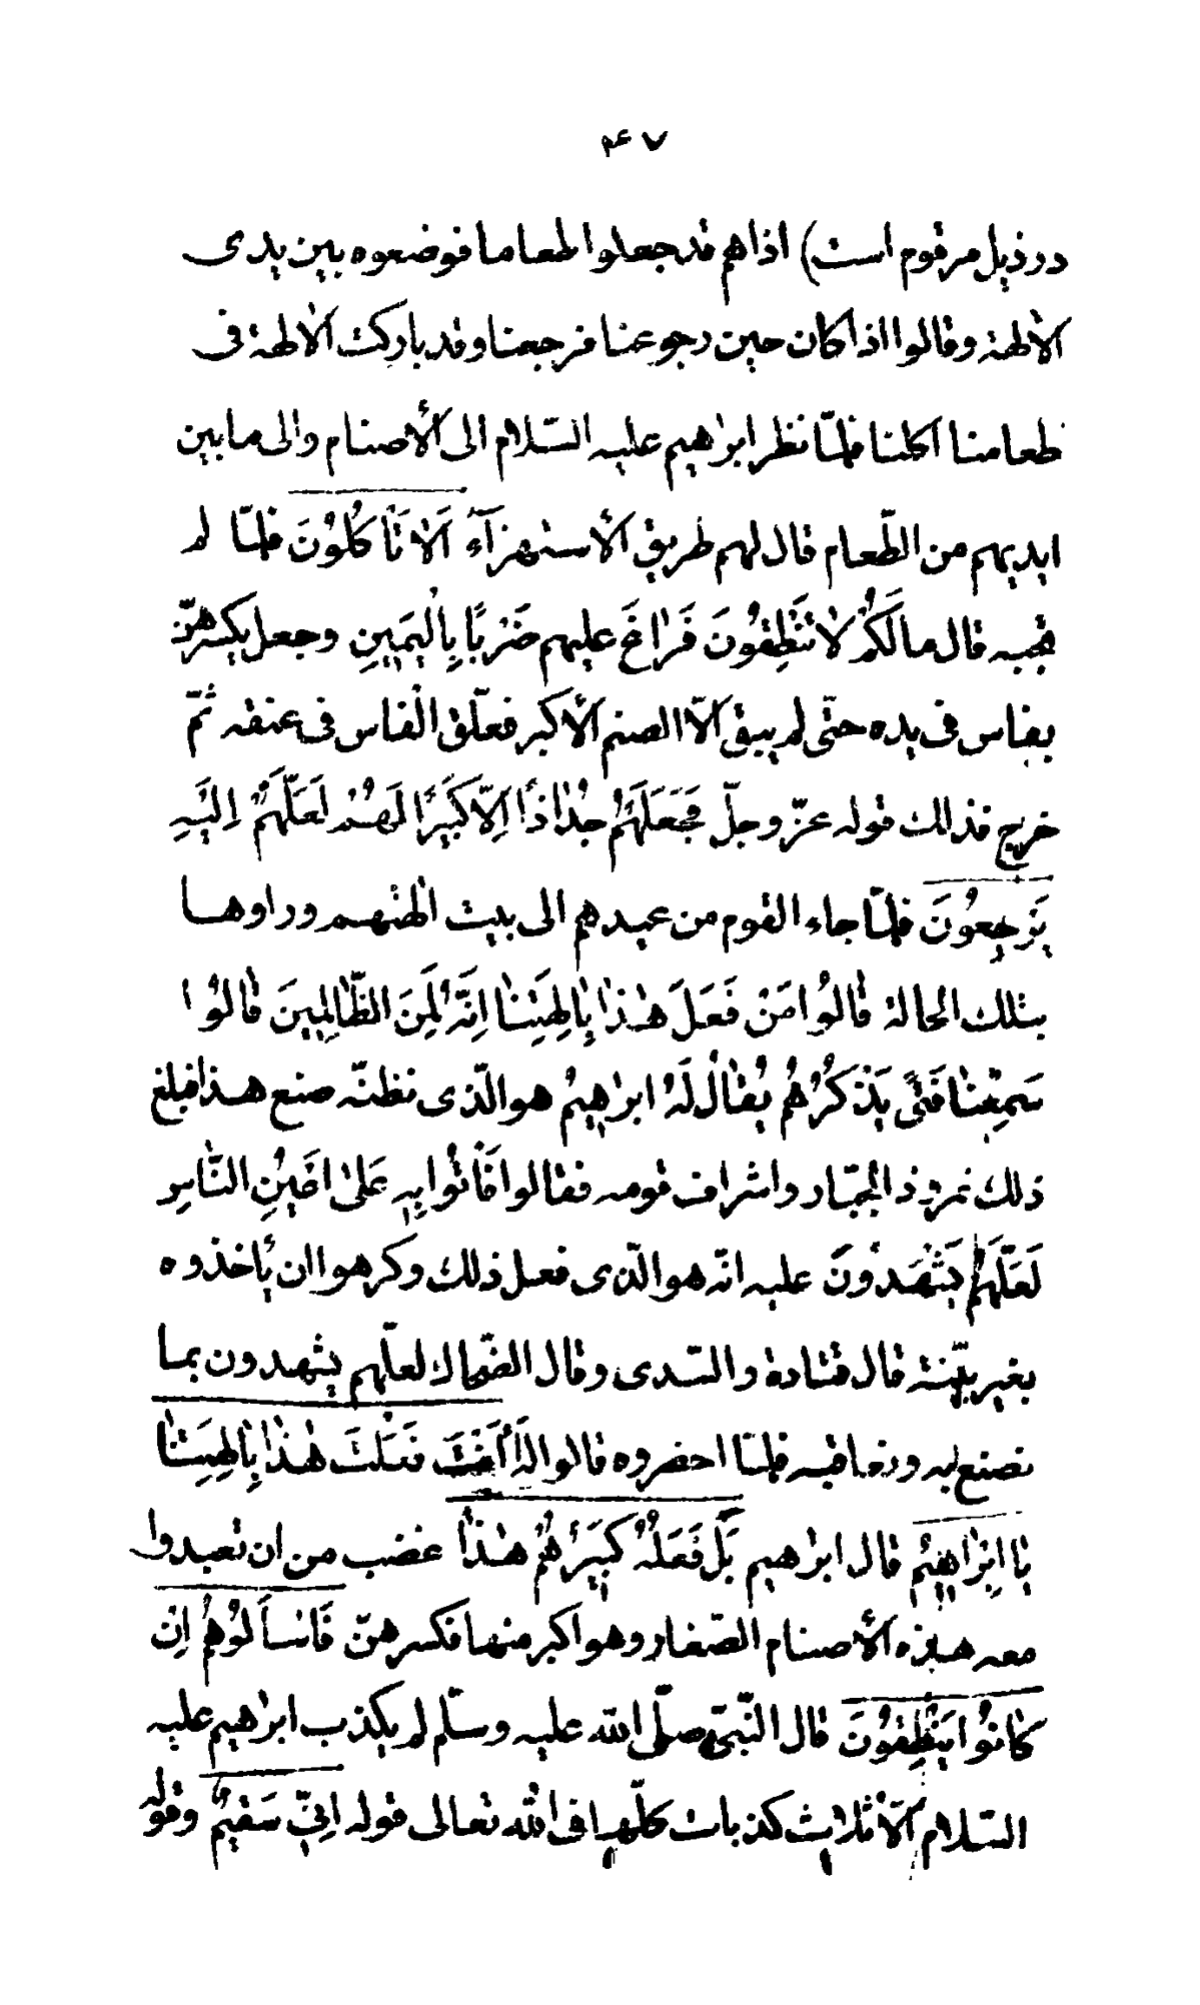 ۴۷
در ذیل مرقوم است) اذا هم قد جعلوا طعاما فوضعوه بین یدی
الالٰهة و قالوا اذا کان حین رجوعنا فرجعنا و قد بارکت الالٰهة فی
طعامنا اکلنا فلمّا نظر ابرٰاهیم علیه السّلام الی الأصنام والی ما بین
ایدیهم من الطّعام قال لهم طریق الأستهزآء اَلاٰ تَأْکُلُوْنَ فلمّا لم
تجبه قال مٰالَکُمْ لاٰ تَنْطِقُونَ فَرٰاغَ علیهم ضَرْبًا بِالْیَمینِ و جعل یکسرهنّ
بفاس فی یده حتّی لم یبق الّا الصنم الأکبر فعلّق الفاس فی عنقه ثمّ
خرج فذالك قوله عزّ وجلّ فَجَعَلَهُمْ جُذٰاذًا اِلّا کَبیرًا لَهُمْ لَعَلَّهُمْ اِلَیْهِ
یَرْجِعُونَ فلمّا جاء القوم من عیدهم الی بیت الٰهتهم و راوها
بتلك الحالة قٰالُوا مَنْ فَعَلَ هٰذٰا بِاٰلِهَتِنٰا اِنَّهُ لَمِنَ الظّٰالِمِینَ قٰالُوا
سَمِعْنٰا فَتًی یَذْکُرُهُمْ یُقٰالُ لَهُ ابرٰاهیمُ هو الّذی نظنّه صنع هذا فبلغ
ذلك نمروذ الجبّار و اشراف قومه فقالوا فَأْتُوا بِهِ عَلیٰ اَعْیُنِ النّٰاسِ
لَعَلَّهُمْ یَشْهَدُونَ علیه انّه هو الّذی فعل ذلك و کرهوا ان یأخذوه
بغیر بیّنة قال قتادة و السّدی و قال الضّحاك لعلّهم یشهدون بما
نصنع به و نعاقبه فلمّا احضروه قالوا له أَأَنْتَ فَعَلْتَ هٰذٰا بِاٰلِهَتِنٰا
یٰا اِبْرٰاهِیْمُ قال ابرٰاهیم بَلْ فَعَلَهُ کَبیرُهُمْ هٰذٰا غضب من ان تعبدوا
معه هذه الأصنام الصّغار و هو اکبر منها فکسرهنّ فَاسْأَلُوْهُمْ اِنْ
کٰانُوا یَنْطِقُونَ قال النّبیّ صلّی الله علیه و سلّم لم یکذب ابرٰاهیم علیه
السّلام الّا ثلاث کذبات کلّها فی الله تعالی قوله اِنّی سَقیمٌ و قوله